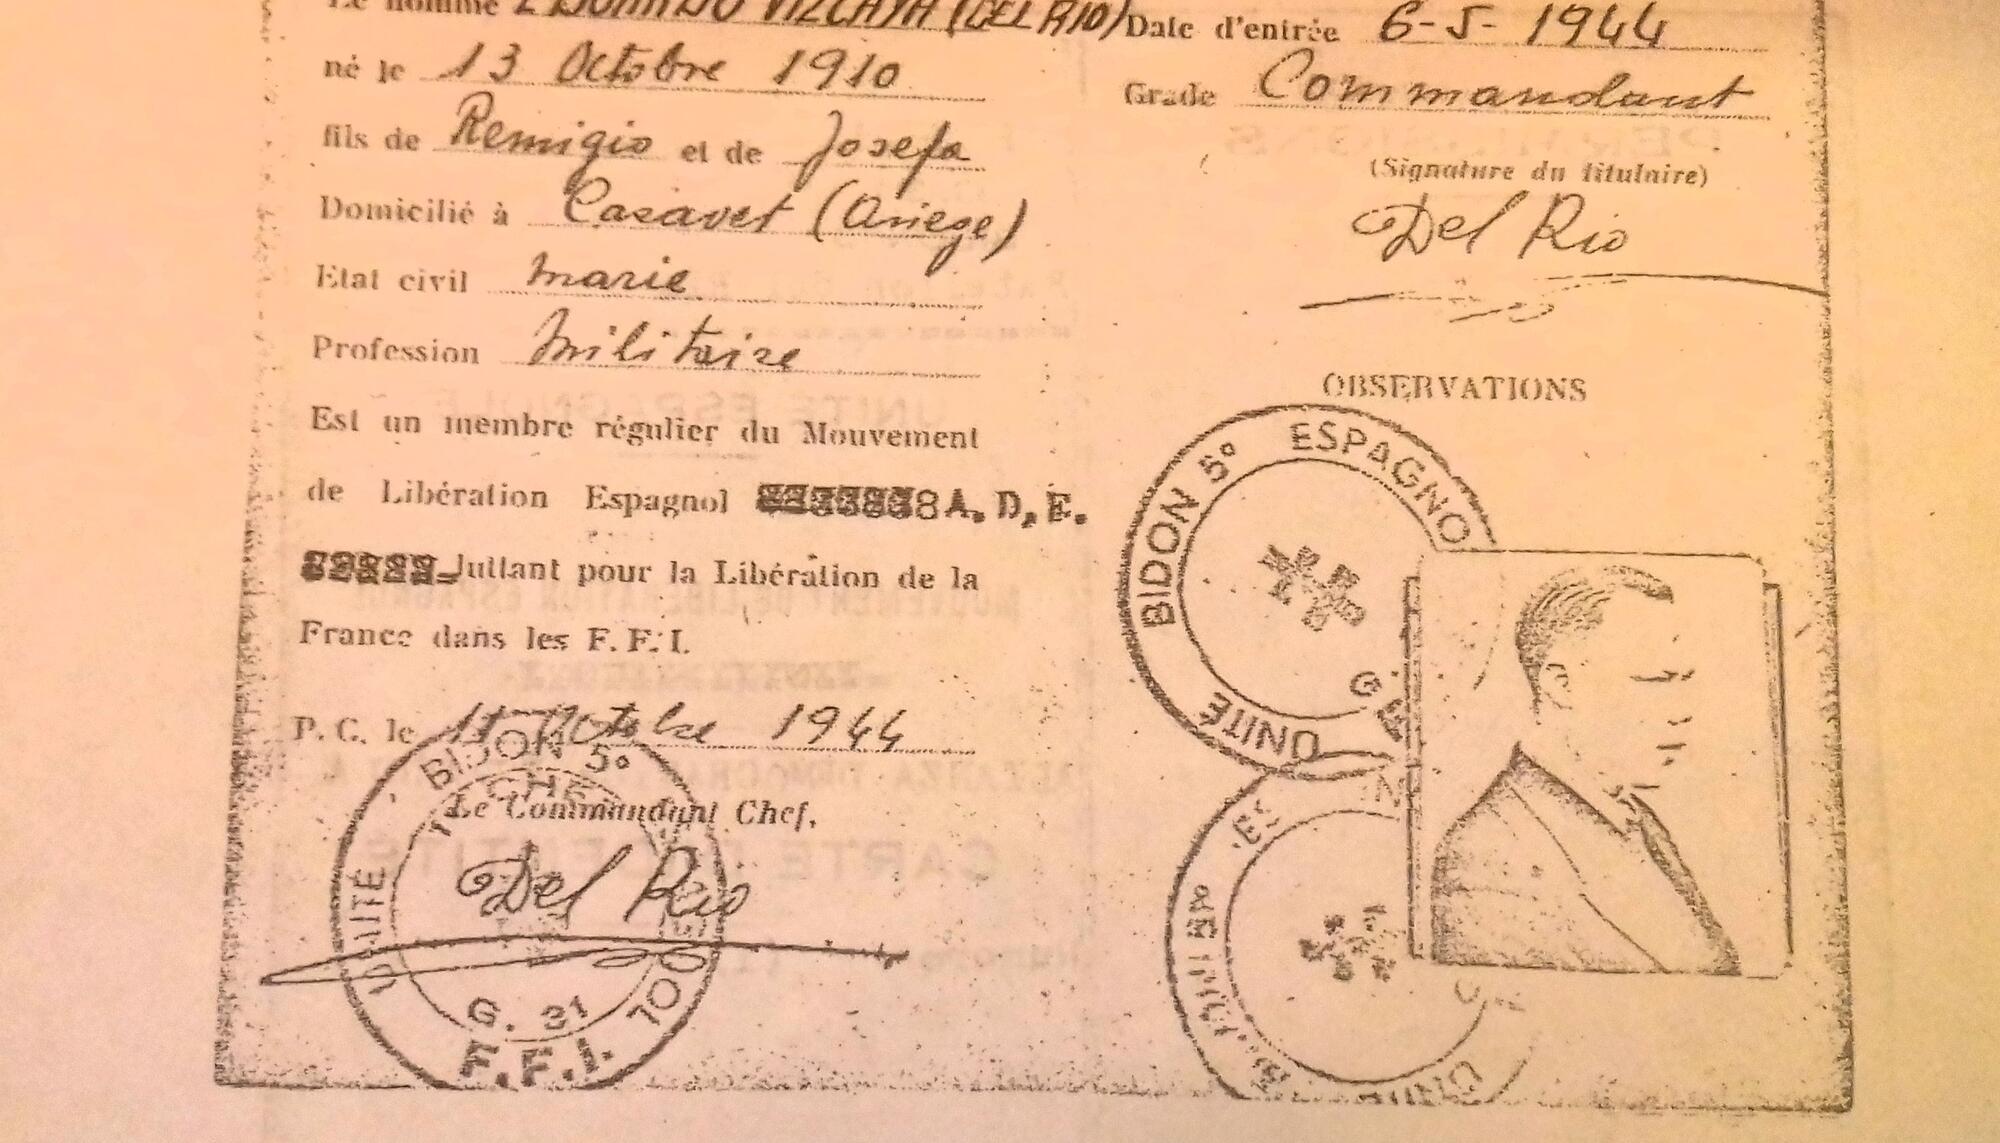 Le nommé EDUARDO VIZCAYA (DEL RIO)
né le 13 Octobre 1910
fils de Remigio et de Josefa
Domicilié à Cazavet (Ariege)
Etat civil marie
Profession Militaire
Est un membre régulier du Mouvement
de Libération Espagnol A. D. E.
luttant pour la Libération de la
France dans les F.F.I.
P. C. le Octobre 1944
Le Commandant Chef,
Del Rio
BIDON 5º
UNITÉ
G. 31
F.F.I.
Date d'entrée 6-5-1944
Grade Commandant
(Signature du titulaire)
Del Rio
OBSERVATIONS
BIDON 5º ESPAGNO
UNITÉ